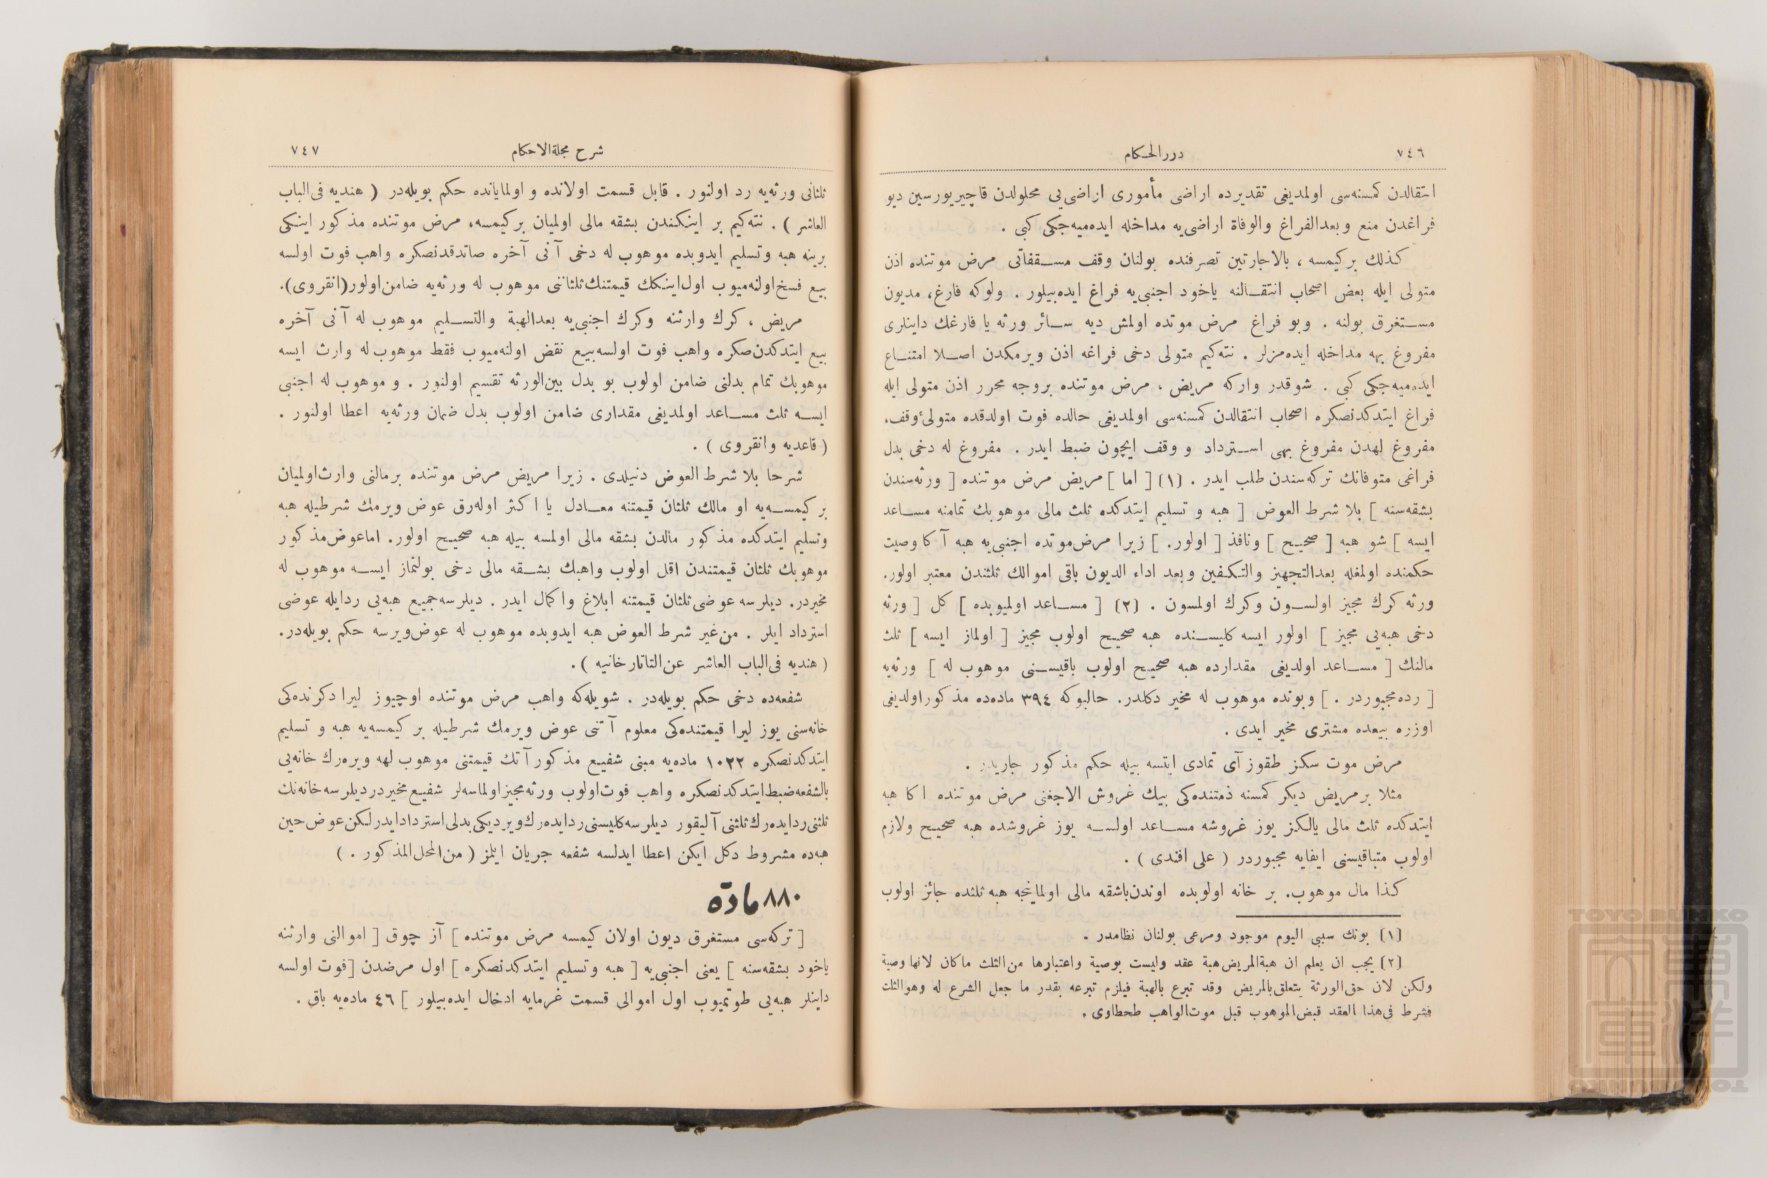 ٧٤٦
دررالحكام
انتقالدن كمسنه‌سى اولمديغى تقديرده اراضى مأمورى اراضى‌يى محلولدن قاچيريورسين ديو
فراغدن منع و بعدالفراغ والوفاة اراضى‌يه مداخله ايده‌ميه‌جكى كبى .
كذلك بركيمسه ، بالاجارتين تصرفنده بولنان وقف مسقفاتى مرض موتنده اذن
متولى ايله بعض اصحاب انتقالنه ياخود اجنبى‌يه فراغ ايده‌بيلور . ولوكه فارغ، مديون
مستغرق بولنه . وبو فراغ مرض موتده اولمش ديه سائر ورثه يا فارغك داينلرى
مفروغ بهه مداخله ايده‌مزلر . نته‌كيم متولى دخى فراغه اذن ويرمكدن اصلا امتناع
ايده‌ميه‌جكى كبى . شوقدر واركه مريض ، مرض موتنده بروجه محرر اذن متولى ايله
فراغ ايتدكدنصكره اصحاب انتقالدن كمسنه‌سى اولمديغى حالده فوت اولدقده متولئ وقف،
مفروغ لهدن مفروغ بهى استرداد و وقف ايچون ضبط ايدر . مفروغ له دخى بدل
فراغى متوفانك تركه‌سندن طلب ايدر . (١) [ اما ] مريض مرض موتنده [ ورثه‌سندن
بشقه‌سنه ] بلا شرط العوض [ هبه و تسليم ايتدكده ثلث مالى موهوبك تمامنه مساعد
ايسه ] شو هبه [ صحيح ] ونافذ [ اولور. ] زيرا مرض‌موتده اجنبى‌يه هبه آكا وصيت
حكمنده اولمغله بعدالتجهيز والتكفين وبعد اداء الديون باقى اموالك ثلثندن معتبر اولور.
ورثه كرك مجيز اولسون وكرك اولمسون . (٢) [ مساعد اولميوبده ] كل [ ورثه
دخى هبه‌يى مجيز ] اولور ايسه كليسنده هبه صحيح اولوب مجيز [ اولماز ايسه ] ثلث
مالنك [ مساعد اولديغى مقدارده هبه صحيح اولوب باقيسنى موهوب له ] ورثه‌يه
[ رده‌مجبوردر . ] وبونده موهوب له مخير دكلدر. حالبوكه ٣٩٤ ماده‌ده مذكور اولديغى
اوزره بيعده مشترى مخير ايدى .
مرض موت سكز طقوز آى تمادى ايتسه بيله حكم مذكور جاريدر .
مثلا بر مريض ديكر كمسنه ذمتنده‌كى بيك غروش الاجغنى مرض موتنده اكا هبه
ايتدكده ثلث مالى يالكز يوز غروشه مساعد اولسه يوز غروشده هبه صحيح ولازم
اولوب متباقيسنى ايفايه مجبوردر ( على افندى ) .
كذا مال موهوب. بر خانه اولوبده اوندن‌باشقه مالى اولمانجه هبه ثلثده جائز اولوب
(١) بونك سببى اليوم موجود ومرعى بولنان نظامدر .
(٢) يجب ان يعلم ان هبةالمريض‌هبة عقد وليست بوصية واعتبارها من‌الثلث ماكان لانها وصية
ولكن لان حق‌الورثة يتعلق‌بالمريض وقد تبرع بالهبة فيلزم تبرعه بقدر ما جعل الشرع له وهوالثلث
فشرط فى‌هذا العقد قبض‌الموهوب قبل موت‌الواهب طحطاوى .
شرح مجلةالاحكام
٧٤٧
ثلثانى ورثه‌يه رد اولنور . قابل قسمت اولانده و اولمايانده حكم بويله‌در ( هنديه فى‌الباب
العاشر ) . نته‌كيم بر اينكندن بشقه مالى اولميان بركيمسه، مرض موتنده مذكور اينكى
برينه هبه وتسليم ايدوبده موهوب له دخى آنى آخره صاتدقدنصكره واهب فوت اولسه
بيع فسخ‌اولنه‌ميوب اول‌اينكك قيمتنك‌ثلثاننى موهوب له ورثه‌يه ضامن‌اولور(انقروى).
مريض ، كرك وارثنه وكرك اجنبى‌يه بعدالهبة والتسليم موهوب له آنى آخره
بيع ايتدكدن‌صكره واهب فوت اولسه‌بيع نقض اولنه‌ميوب فقط موهوب‌له وارث ايسه
موهوبك تمام بدلنى ضامن اولوب بو بدل بين‌الورثه تقسيم اولنور . و موهوب له اجنبى
ايسه ثلث مساعد اولمديغى مقدارى ضامن اولوب بدل ضمان ورثه‌يه اعطا اولنور .
( قاعديه وانقروى ) .
شرحا بلا شرط العوض دنيلدى . زيرا مريض مرض موتنده برمالنى وارث‌اولميان
بر كيمسه‌يه او مالك ثلثان قيمتنه معادل يا اكثر اوله‌رق عوض ويرمك شرطيله هبه
وتسليم ايتدكده مذكور مالدن بشقه مالى اولمسه بيله هبه صحيح اولور. اماعوض‌مذكور
موهوبك ثلثان قيمتندن اقل اولوب واهبك بشقه مالى دخى بولنماز ايسه موهوب له
مخيردر. ديلرسه عوضى ثلثان قيمتنه ابلاغ واكمال ايدر . ديلرسه‌جميع هبه‌يى ردايله عوضى
استرداد ايلر . من‌غير شرط العوض هبه ايدوبده موهوب له عوض‌ويرسه حكم بويله‌در.
( هنديه فى‌الباب العاشر عن‌التاتارخانيه ) .
شفعه‌ده دخى حكم بويله‌در . شويله‌كه واهب مرض موتنده اوچيوز ليرا دكرنده‌كى
خانه‌سنى يوز ليرا قيمتنده‌كى معلوم آتنى عوض ويرمك شرطيله بر كيمسه‌يه هبه و تسليم
ايتدكدنصكره ١٠٢٢ ماده‌يه مبنى شفيع مذكور آتك قيمتنى موهوب لهه ويره‌رك خانه‌يى
بالشفعه‌ضبط‌ايتدكدنصكره واهب فوت‌اولوب ورثه‌مجيزاولماسه‌لر شفيع‌مخيردرديلرسه‌خانه‌نك
ثلثنى‌ردايده‌رك‌ثلثنى‌آليقور ديلرسه‌كليسنى‌ردايده‌رك‌ويرديكى‌بدلى‌استردادايدرلكن‌عوض‌حين
هبه‌ده مشروط دكل ايكن اعطا ايدلسه شفعه جريان ايلمز ( من‌المحل‌المذكور . )
٨٨٠ مادة
[ تركه‌سى مستغرق ديون اولان كيمسه مرض موتنده ] آز چوق [ اموالنى وارثنه
ياخود بشقه‌سنه ] يعنى اجنبى‌يه [ هبه وتسليم ايتدكدنصكره ] اول مرضدن [فوت اولسه
داينلر هبه‌يى طوتميوب اول اموالى قسمت غرمايه ادخال ايده‌بيلور ] ٤٦ ماده‌يه باق .
TOYO BUNKO
東洋文庫